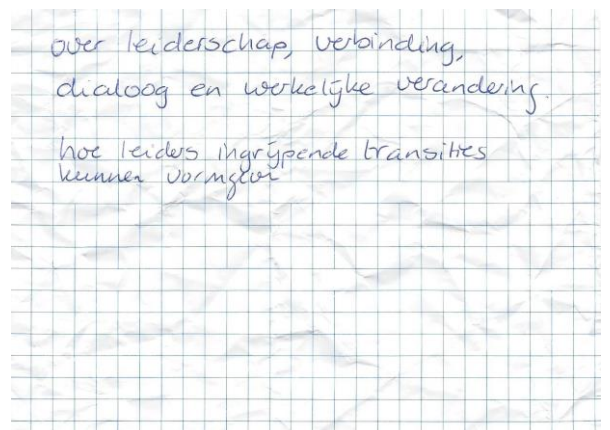 over leiderschap, verbinding,
dialoog en werkelijke verandering.
hoe leiders ingrijpende transities
kunnen vormgeven